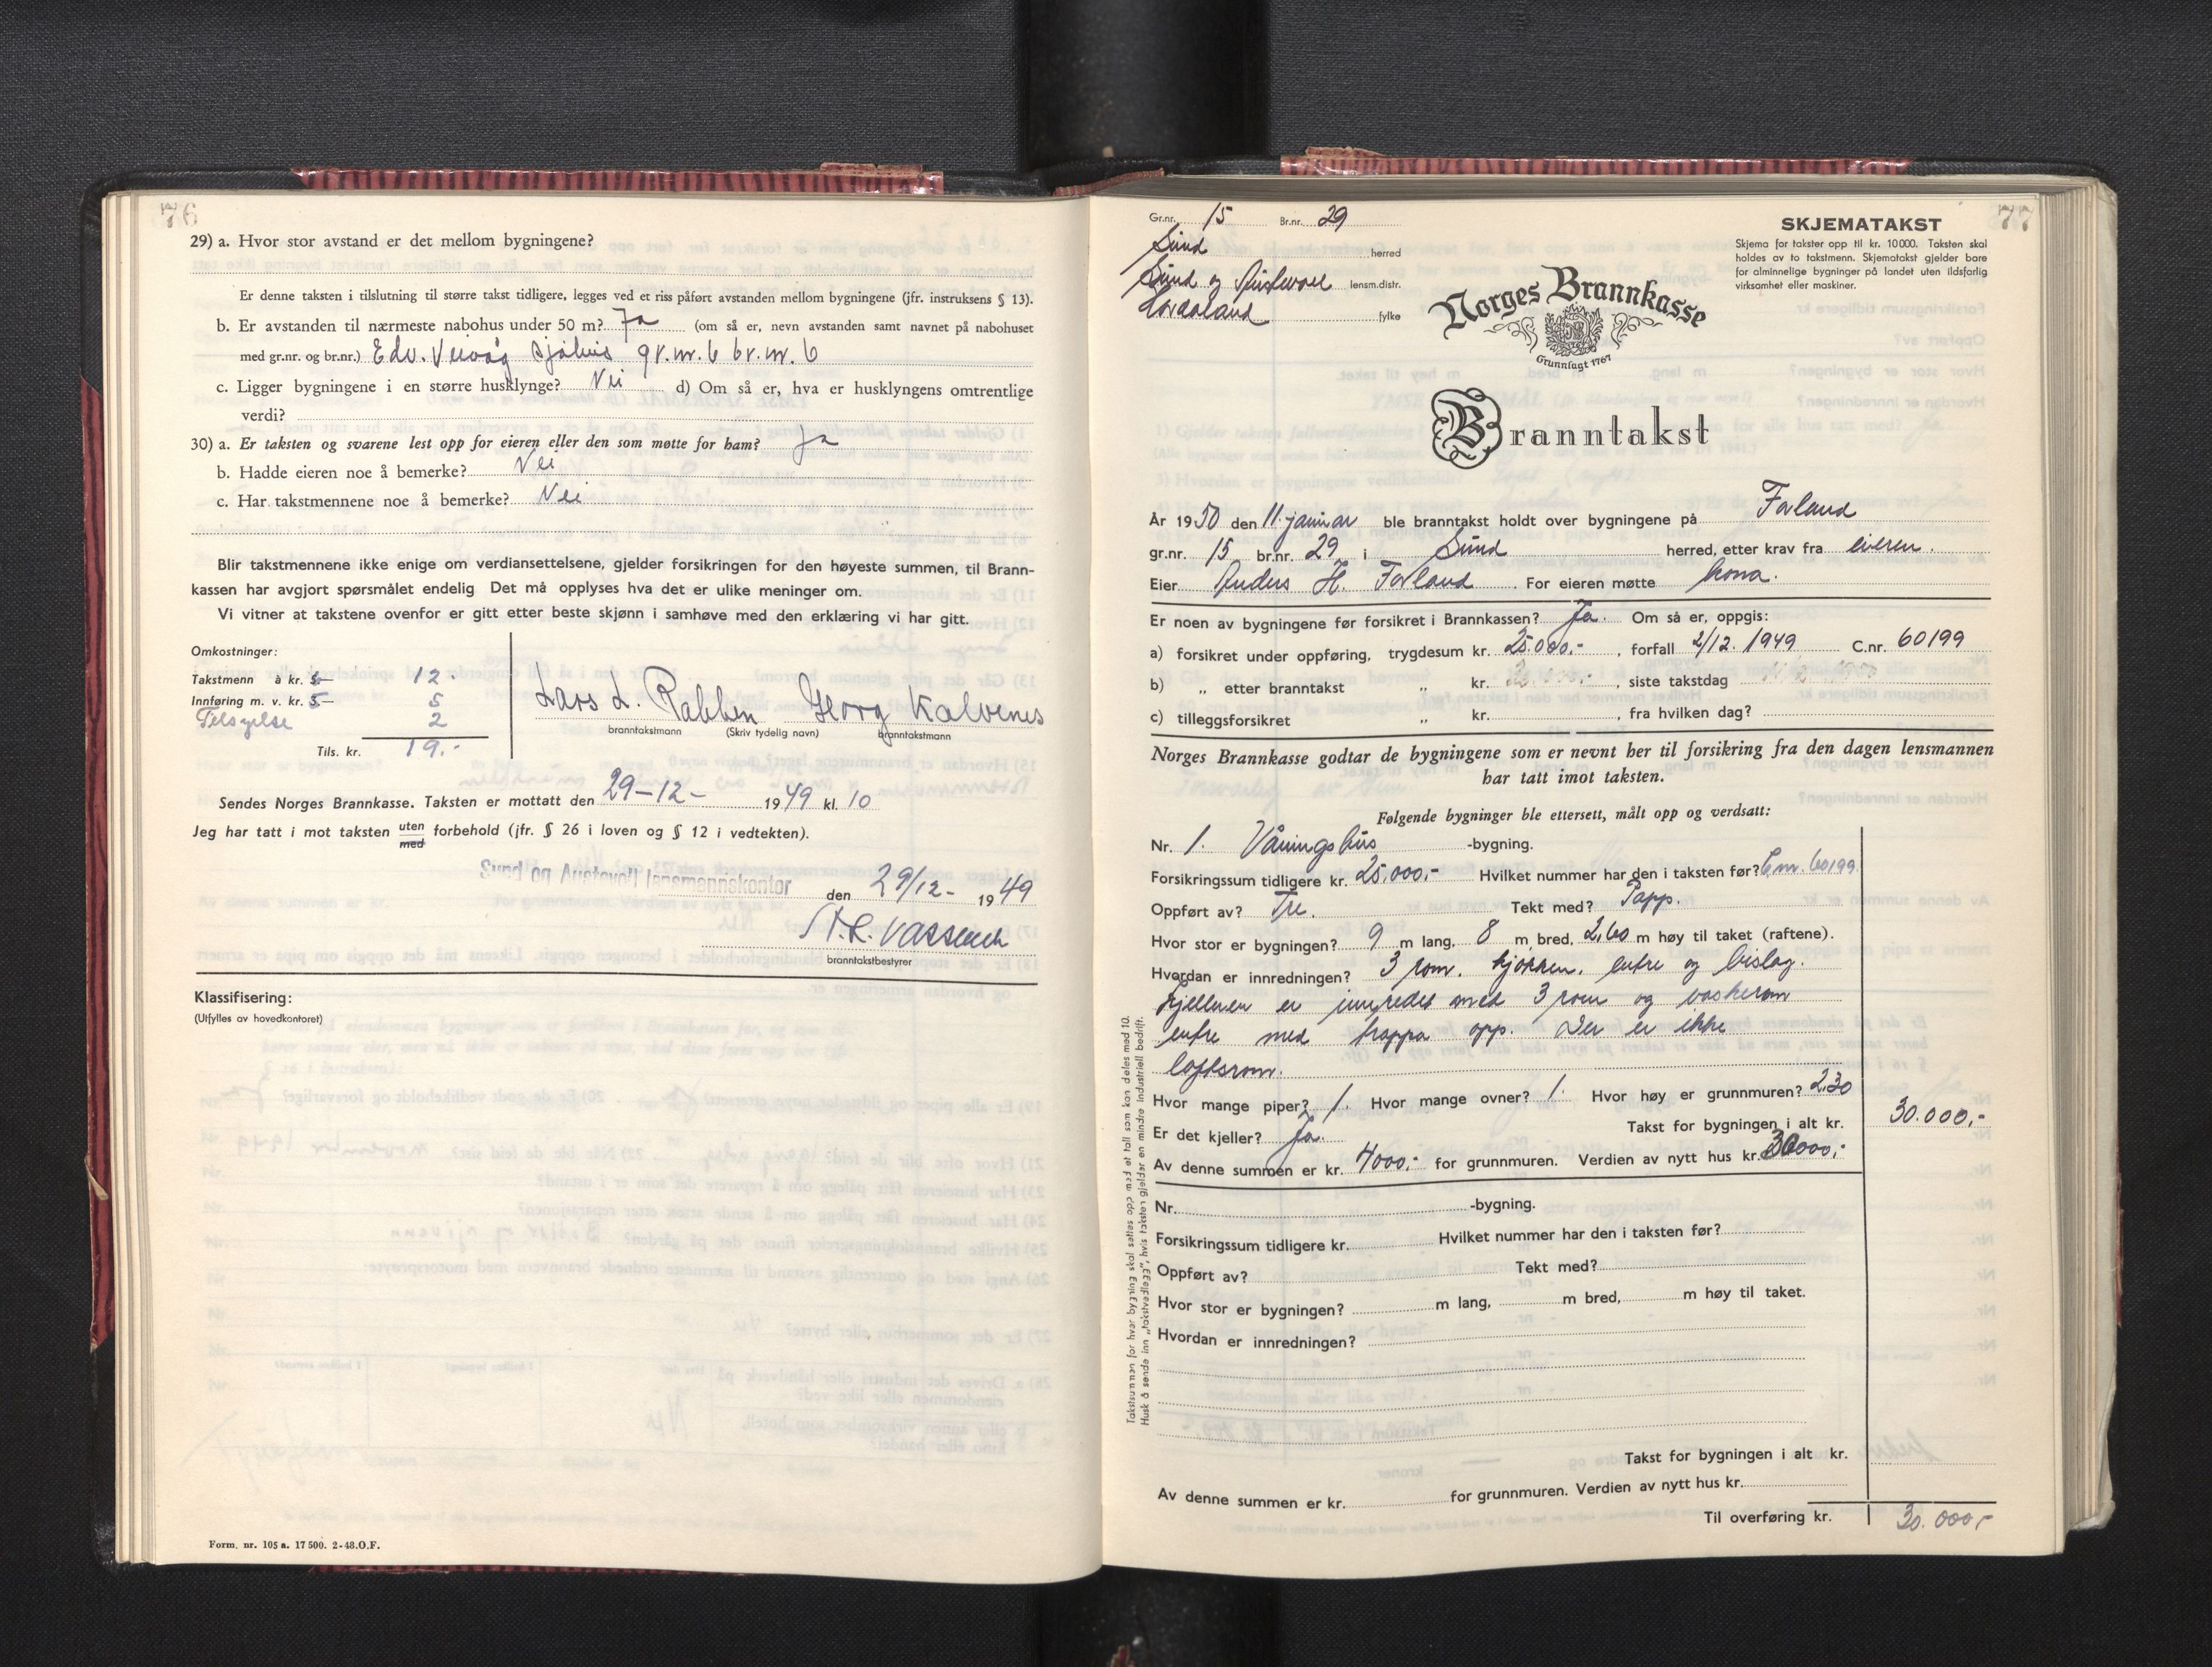 76
29) a. Hvor stor avstand er det mellom bygningene?
Er denne taksten i tilslutning til større takst tidligere, legges ved et riss påført avstanden mellom bygningene (jfr. instruksens § 13).
b. Er avstanden til nærmeste nabohus under 50 m? Ja (om så er, nevn avstanden samt navnet på nabohuset
med gr.nr. og br.nr.) Edv. sjøhus gr.nr. 6 br.nr. 6
c. Ligger bygningene i en større husklynge? Nei d) Om så er, hva er husklyngens omtrentlige
verdi?
30) a. Er taksten og svarene lest opp for eieren eller den som møtte for ham? Ja
b. Hadde eieren noe å bemerke? Nei
c. Har takstmennene noe å bemerke? Nei
Blir takstmennene ikke enige om verdiansettelsene, gjelder forsikringen for den høyeste summen, til Brann-
kassen har avgjort spørsmålet endelig Det må opplyses hva det er ulike meninger om.
Vi vitner at takstene ovenfor er gitt etter beste skjønn i samhøve med den erklæring vi har gitt.
Omkostninger:
Takstmenn à kr. 5- 12.
Innføring m. v. kr. 5.- 5
2
Tils. kr. 19.-
Lars L. Rabben Georg Kalvenes
branntakstmann (Skriv tydelig navn) branntakstmann
Sendes Norges Brannkasse. Taksten er mottatt den 29-12- 1949 kl. 10
Jeg har tatt i mot taksten uten med forbehold (jfr. § 26 i loven og § 12 i vedtekten).
Sund og Austevoll lensmannskontor den 29/12- 1949
branntakstbestyrer
Klassifisering:
(Utfylles av hovedkontoret)
Form. nr. 105 a. 17 500. 2-48.O.F.
77
Gr.nr. 15 Br.nr. 29
Sund herred
Sund og Austevoll lensm.distr.
Hordaland fylke
SKJEMATAKST
Skjema for takster opp til kr. 10000. Taksten skal
holdes av to takstmenn. Skjematakst gjelder bare
for alminnelige bygninger på landet uten ildsfarlig
virksomhet eller maskiner.
Norges Brannkasse
Grunnlagt 1767
Branntakst
År 1950 den 11. januar ble branntakst holdt over bygningene på Forland
gr.nr. 15 br.nr. 29 i Sund herred, etter krav fra eieren.
Eier Anders H. Forland. For eieren møtte kona.
Er noen av bygningene før forsikret i Brannkassen? Ja. Om så er, oppgis:
a) forsikret under oppføring, trygdesum kr. 25.000,- , forfall 2/12. 1949 C.nr. 60199
b) „ etter branntakst „ kr. , siste takstdag
c) tilleggsforsikret „ kr. , fra hvilken dag?
Norges Brannkasse godtar de bygningene som er nevnt her til forsikring fra den dagen lensmannen
har tatt imot taksten.
Følgende bygninger ble ettersett, målt opp og verdsatt:
Nr. 1. Våningshus -bygning.
Forsikringssum tidligere kr. 25.000,- Hvilket nummer har den i taksten før? C.nr. 60199
Oppført av? Tre. Tekt med? Papp.
Hvor stor er bygningen? 9 m lang, 8 m bred, 2,60 m høy til taket (raftene).
Hvordan er innredningen? 3 rom, kjøkken, entre og bislag.
Kjelleren er innredet med 3 rom og vaskerom
entre med trappa opp. Der er ikke
loftsrom.
Hvor mange piper? 1. Hvor mange ovner? 1. Hvor høy er grunnmuren? 2,30
Er det kjeller? Ja. Takst for bygningen i alt kr. 30.000,-
Av denne summen er kr. 4000,- for grunnmuren. Verdien av nytt hus kr. 30000,-
Nr. -bygning.
Forsikringssum tidligere kr. Hvilket nummer har den i taksten før?
Oppført av? Tekt med?
Hvor stor er bygningen? m lang, m bred, m høy til taket.
Hvordan er innredningen?
Takst for bygningen i alt kr.
Av denne summen er kr. for grunnmuren. Verdien av nytt hus kr.
Til overføring kr. 30.000,-
Takstsummen for hver bygning skal settes opp med et tall som kan deles med 10.
Husk å sende inn „takstvedlegg", hvis taksten gjelder en mindre industriell bedrift.